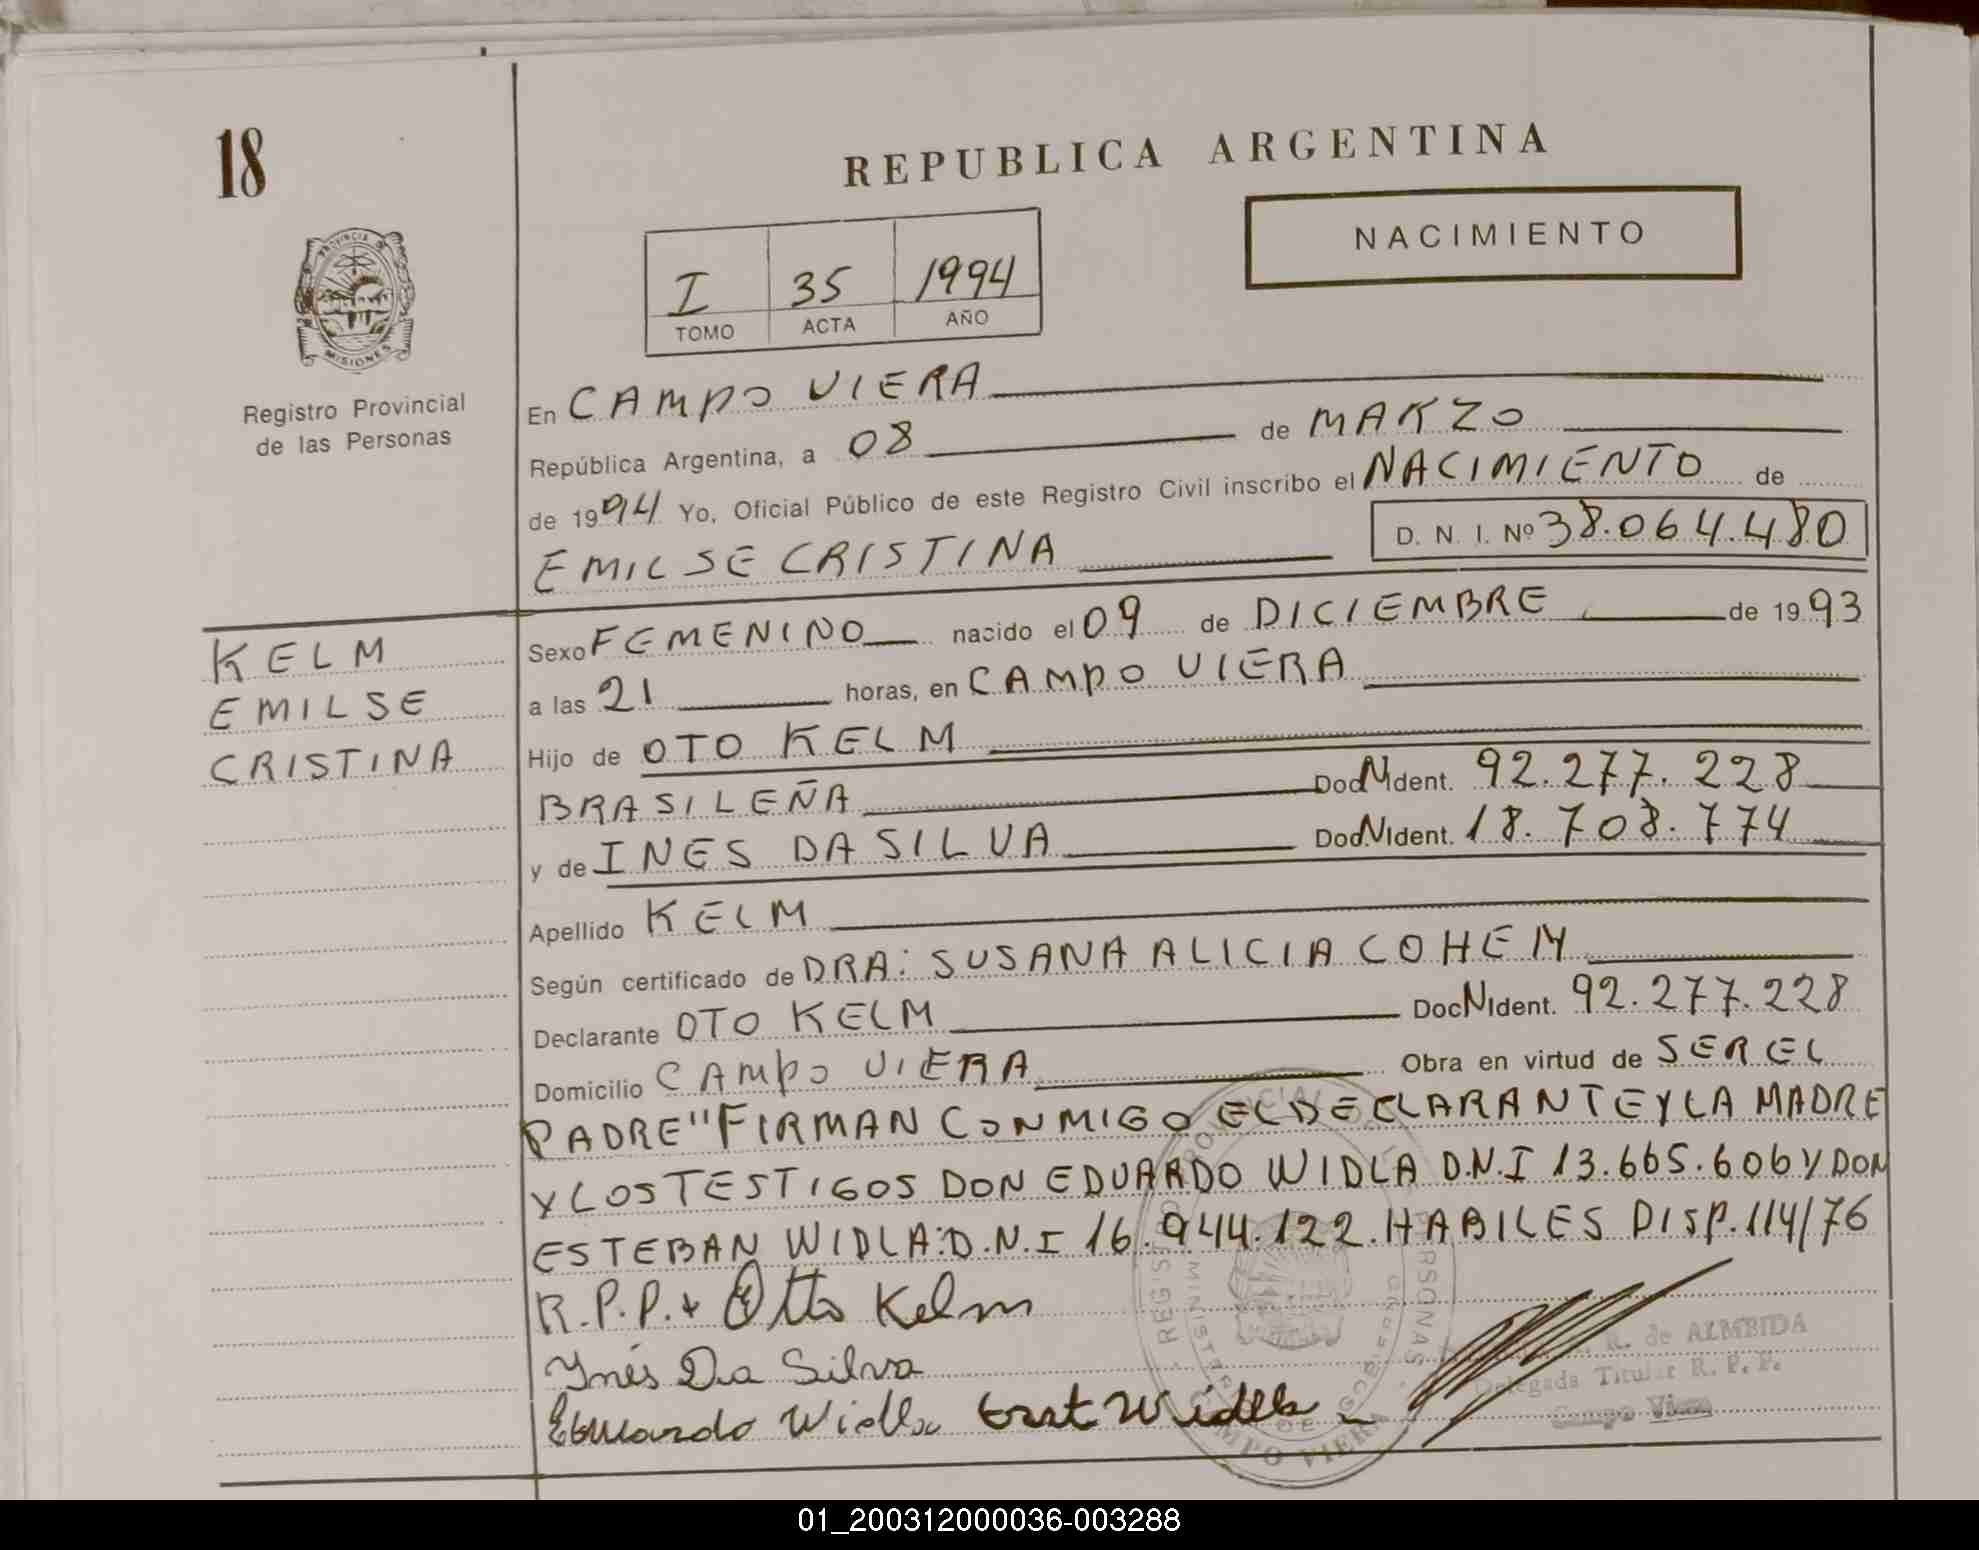 18
REPUBLICA ARGENTINA
NACIMIENTO
I 35 1994
TOMO ACTA AÑO
PROVINCIA DE
MISIONES
Registro Provincial
de las Personas
En CAMPO VIERA
República Argentina, a 08 de MARZO
de 1994 Yo, Oficial Público de este Registro Civil inscribo el NACIMIENTO de
EMILSE CRISTINA D. N. I. Nº 38.064.480
KELM
EMILSE
CRISTINA
Sexo FEMENINO nacido el 09 de DICIEMBRE de 1993
a las 21 horas, en CAMPO VIERA
Hijo de OTO KELM
BRASILEÑA Doc.N Ident. 92.277.228
y de INES DA SILVA Doc.N Ident. 18.708.774
Apellido KELM
Según certificado de DRA: SUSANA ALICIA COHEN
Declarante OTO KELM Doc N Ident. 92.277.228
Domicilio CAMPO VIERA Obra en virtud de SER EL
PADRE" FIRMAN CONMIGO EL DECLARANTE Y LA MADRE
Y LOS TESTIGOS DON EDUARDO WIDLA D.N.I 13.665.606 Y DON
ESTEBAN WIDLA: D.N.I 16.944.122. HABILES DISP. 114/76
R.P.P. Otto Kelm
Inés Da Silva
Eduardo Widla Widla
R. de ALMEIDA
Delegada Titular R. P. P.
Campo Viera
01_200312000036-003288